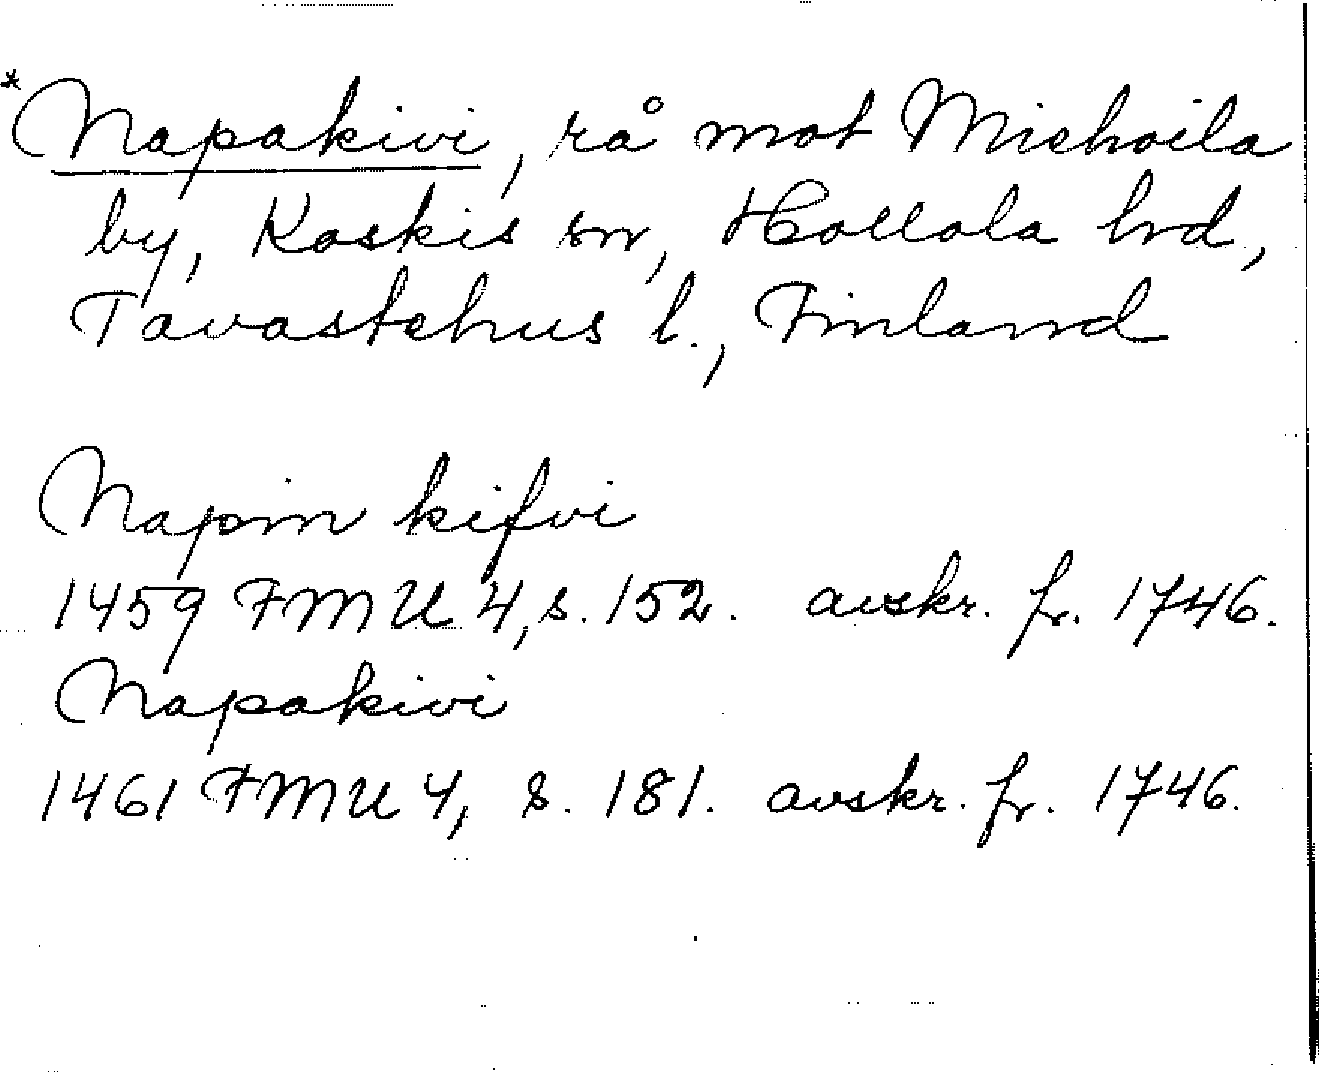 *Napakivi, rå mot Michoila
by, Koskis sn, Hollola hrd,
Tavastehus l., Finland
Napin kifvi
1459 FMU 4, s. 152. avskr. fr. 1746.
Napakivi
1461 FMU 4, s. 181. avskr. fr. 1746.